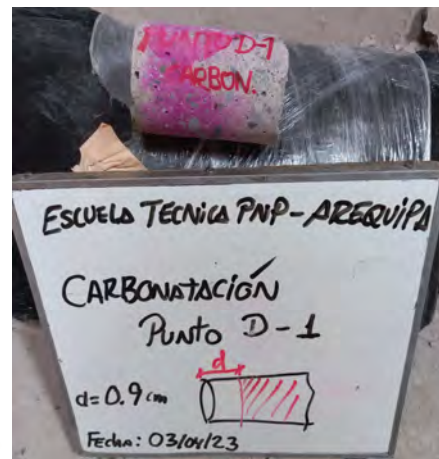 PUNTO D-1
CARBON.
ESCUELA TECNICA PNP-AREQUIPA
CARBONATACIÓN
PUNTO D-1
d
d=0.9cm
FECHA: 03/04/23